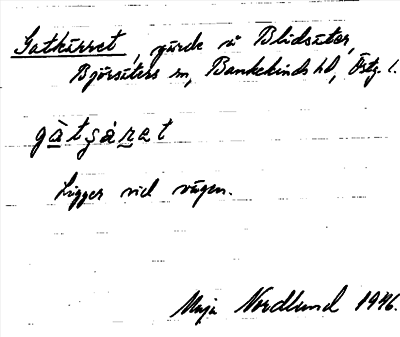 Gatkärret, gärde å Blidsäter,
Björsäters sn, Bankekinds hd, Östg. l.
gàtşàret
Ligger vid vägen.
Maja Nordlund 1946.